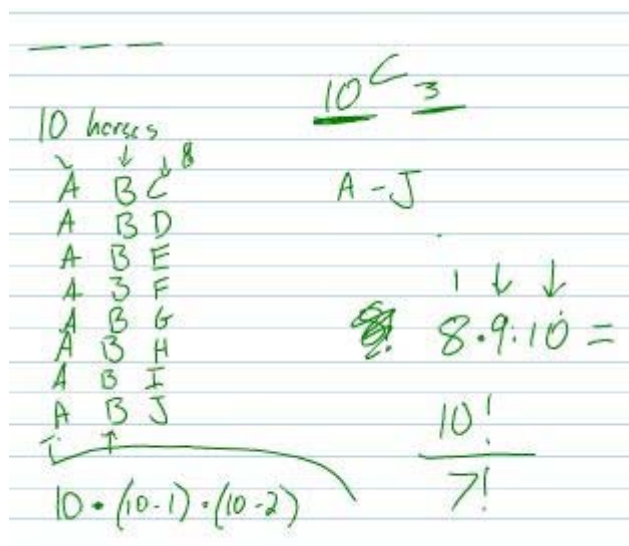 _ _ _
10 C 3
10 horses
8
A B C
A B D
A B E
A B F
A B G
A B H
A B I
A B J
10 • (10-1) • (10-2)
A - J
8 • 9 • 10 =
10!
7!